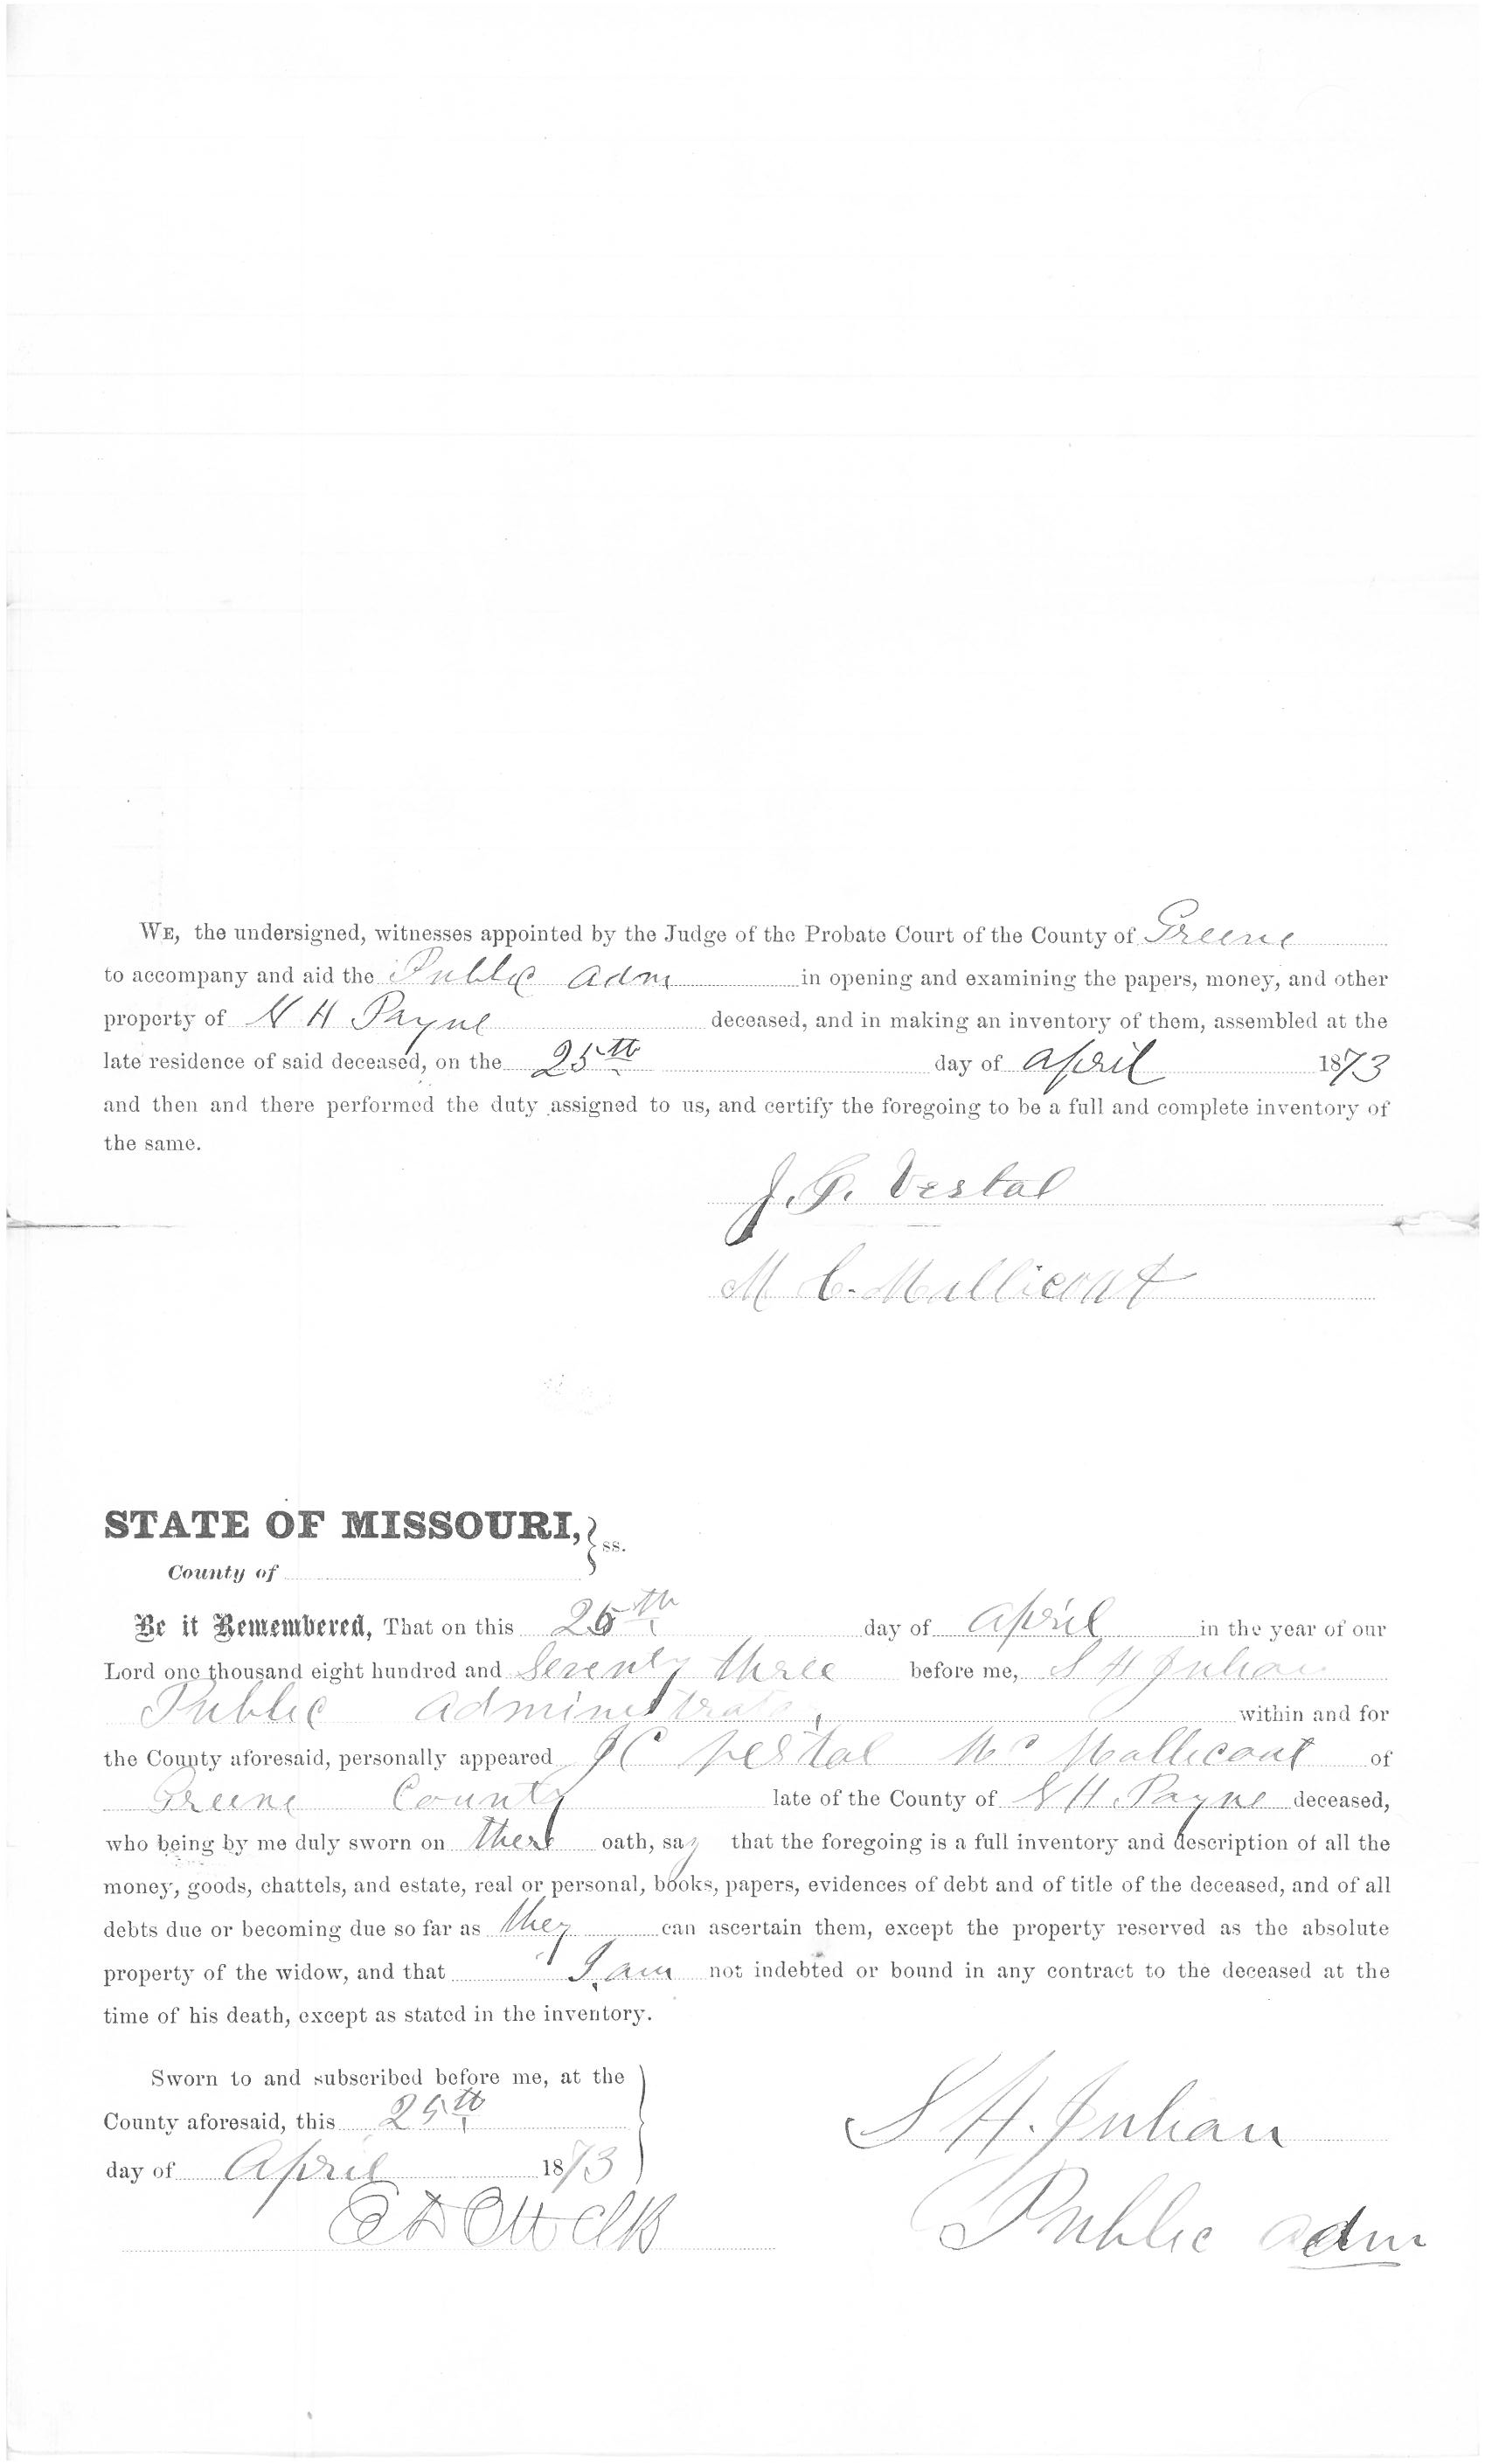 WE, the undersigned, witnesses appointed by the Judge of the Probate Court of the County of Greene
to accompany and aid the Public Adm in opening and examining the papers, money, and other
property of N H Payne deceased, and in making an inventory of them, assembled at the
late residence of said deceased, on the 25th day of April 1873
and then and there performed the duty assigned to us, and certify the foregoing to be a full and complete inventory of
the same.
J. C. Vestal
M C. Mallicoat
STATE OF MISSOURI, } ss.
County of
Be it Remembered, That on this 25th day of April in the year of our
Lord one thousand eight hundred and Seventy three before me, S H Julian
Public Administrator, within and for
the County aforesaid, personally appeared J C Vestal M C Mallicoat of
Greene County late of the County of N H. Payne deceased,
who being by me duly sworn on there oath, say that the foregoing is a full inventory and description of all the
money, goods, chattels, and estate, real or personal, books, papers, evidences of debt and of title of the deceased, and of all
debts due or becoming due so far as they can ascertain them, except the property reserved as the absolute
property of the widow, and that I am not indebted or bound in any contract to the deceased at the
time of his death, except as stated in the inventory.
Sworn to and subscribed before me, at the
County aforesaid, this 25th
day of April 1873
S H. Julian
E D Ott Clk
Public Adm